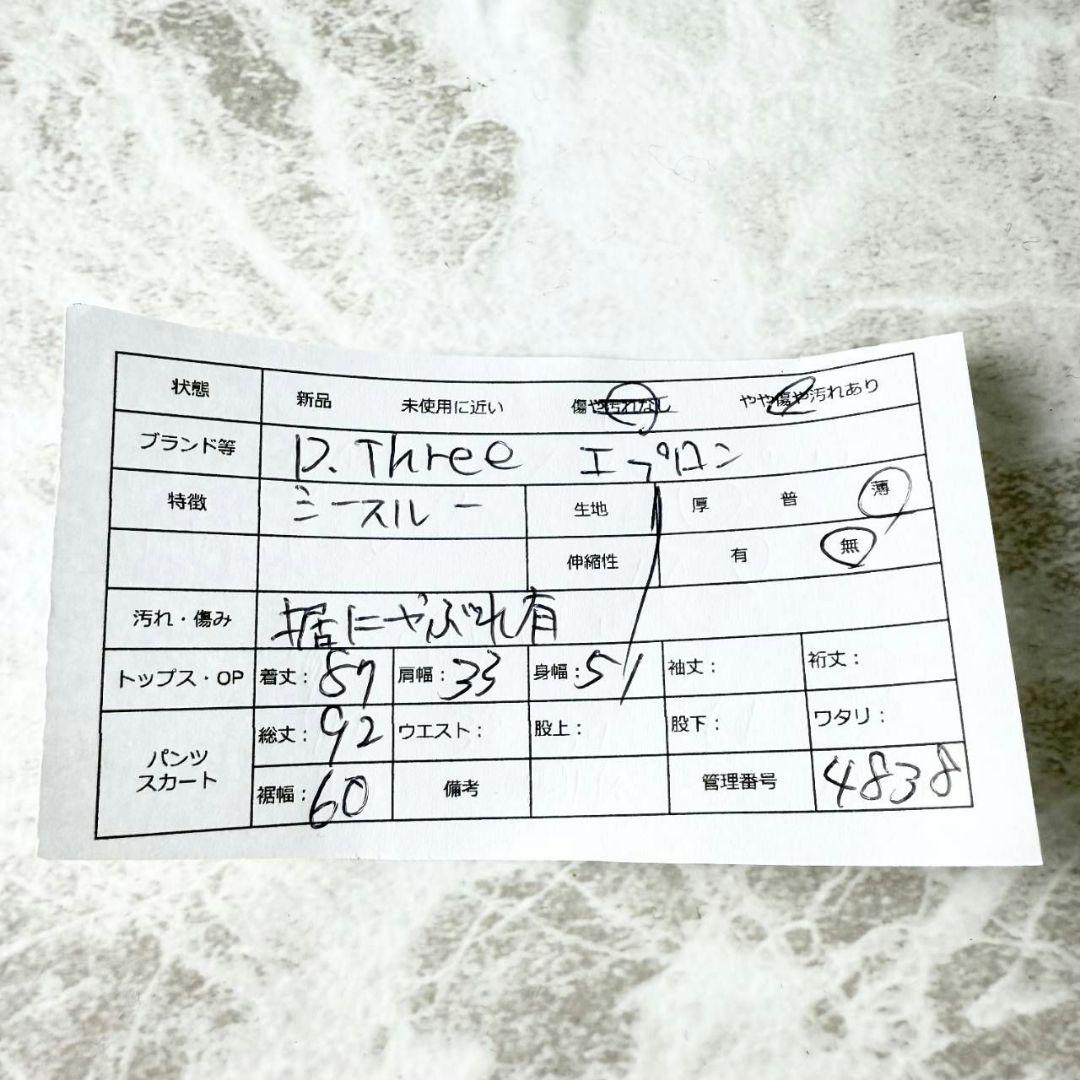 状態 新品 未使用に近い 傷や汚れなし やや傷や汚れあり
ブランド等 D.Three エプロン
特徴 シースルー 生地 厚 普 薄
伸縮性 有 無
汚れ・傷み 裾にやぶれ有
トップス・OP 着丈:87 肩幅:33 身幅:51 袖丈: 裄丈:
パンツ スカート 総丈:92 ウエスト: 股上: 股下: ワタリ:
裾幅:60 備考 管理番号 4838